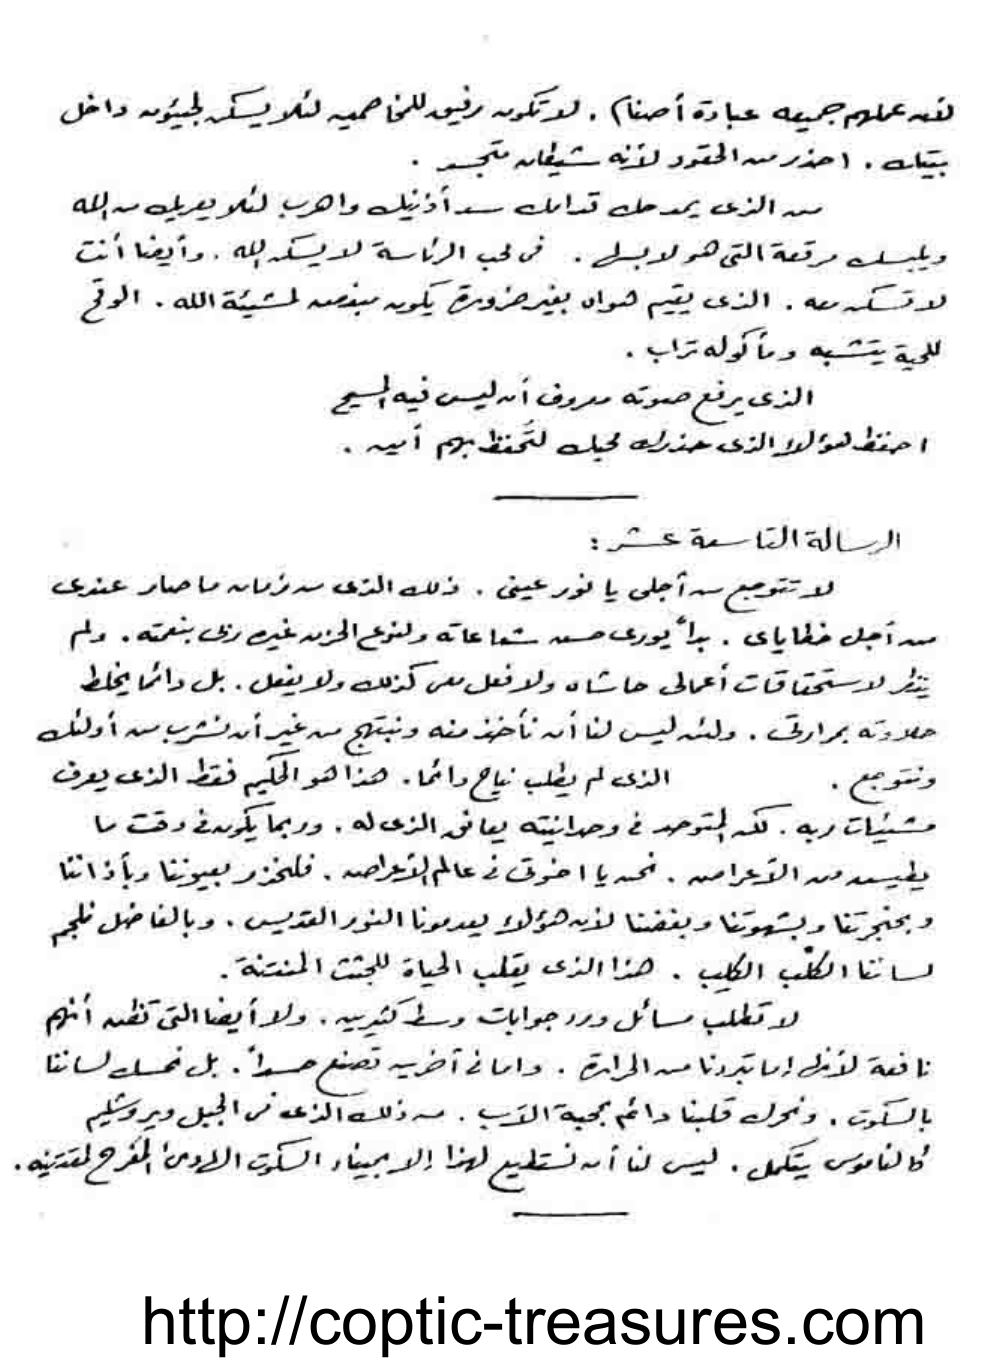 لأن عملهم جميعه عبادة أصنام . لا تكون رفيق للمخاصمين لئلا يسكن لجيئون داخل
بيتك . احذر من الحقود لأنه شيطان متجسد .
من الذى يمدحك قدامك سد أذنيك واهرب لئلا يعريك من الله
ويلبسك مرقعة التى هو لابسها . فى محب الرئاسة لا يسكن الله . وأيضا أنت
لا تسكن معه . الذى يقيم هواه بغير ضرورة يكون مبغض لمشيئة الله . الوقح
للحية يتشبه ومأكوله تراب .
الذى يرفع صوته معروف أن ليس فيه المسيح
احفظ هؤلاء الذى حذرك محبك لتُحفظ بهم أمين .
الرسالة التاسعة عشر :
لا تتوجع من أجلى يا نور عينى . ذلك الذى من زمان ما صار عندى
من أجل خطاياى . بدأ يورى حسن شعاعاته ولنوع الحزن غيره ربى بنعمته . ولم
ينظر لاستحقاقات أعمالى حاشاه ولا فعل معى كذلك ولا يفعل . بل دائما يخلط
حلاوته بمرارتى . ولئن ليس لنا أن نأخذ منه ونبتهج من غير أن نشرب من أولئك
ونتوجع . الذى لم يطلب نياح دائما . هذا هو الحكيم فقط الذى يعرف
مشيئات ربه . لكن المتوحد فى وحدانيته يعانق الذى له . وربما يكون فى وقت ما
يطيـ من الأعراض . نحن يا اخوتى فى عالم الأعراض . فلنحزر بعيوننا وبأذاننا
وبحنجرتنا وبشهوتنا وبغضنا لأن هؤلاء يعدمونا النور القديس . وبالفاضل نلجم
لساننا الكلْب الكليب . هذا الذى يقلب الحياة للجثث المنتنة .
لا تطلب مسائل ورد جوابات وسط كثيرين . ولا أيضا التى تظن أنهم
نافعة لأنها إما تبردنا من الحرارة . واما فى آخرين تصنع حسداً . بل نمسك لساننا
بالسكوت . ونحرك قلبنا دائم بمحبة الآب . من ذلك الذى فى الجبل ويروشليم
كالناموس يتكمل . ليس لنا أن نستطيع لهذا إلا بميناء السكوت الهادئ المفرح لمقتنيه .
http://coptic-treasures.com